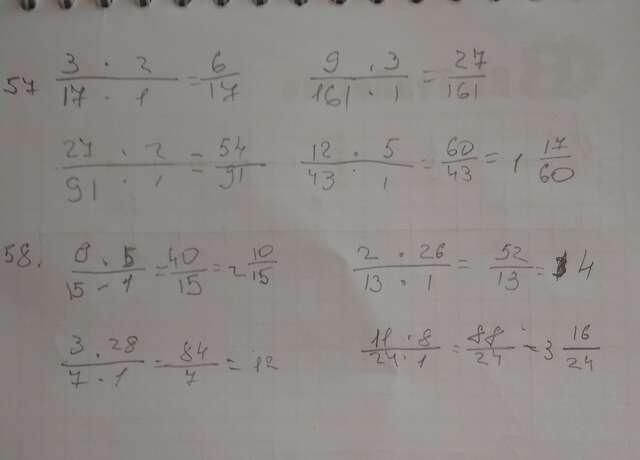 57 3 · 2 / 17 · 1 = 6/17    9 · 3 / 161 · 1 = 27/161
27 · 2 / 91 · 1 = 54/91    12 · 5 / 43 · 1 = 60/43 = 1 17/60
58. 8 · 5 / 15 · 1 = 40/15 = 2 10/15    2 · 26 / 13 · 1 = 52/13 = 4
3 · 28 / 7 · 1 = 84/7 = 12    11 · 8 / 24 · 1 = 88/24 = 3 16/24